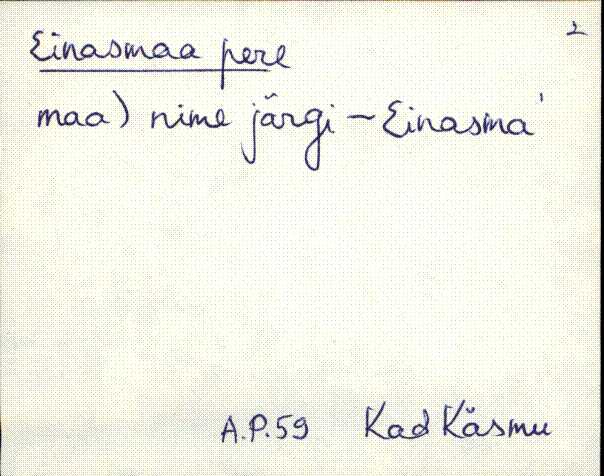 2
Einasmaa pere
maa) nime järgi – Einasma'
A.P.59 Kad Käsmu